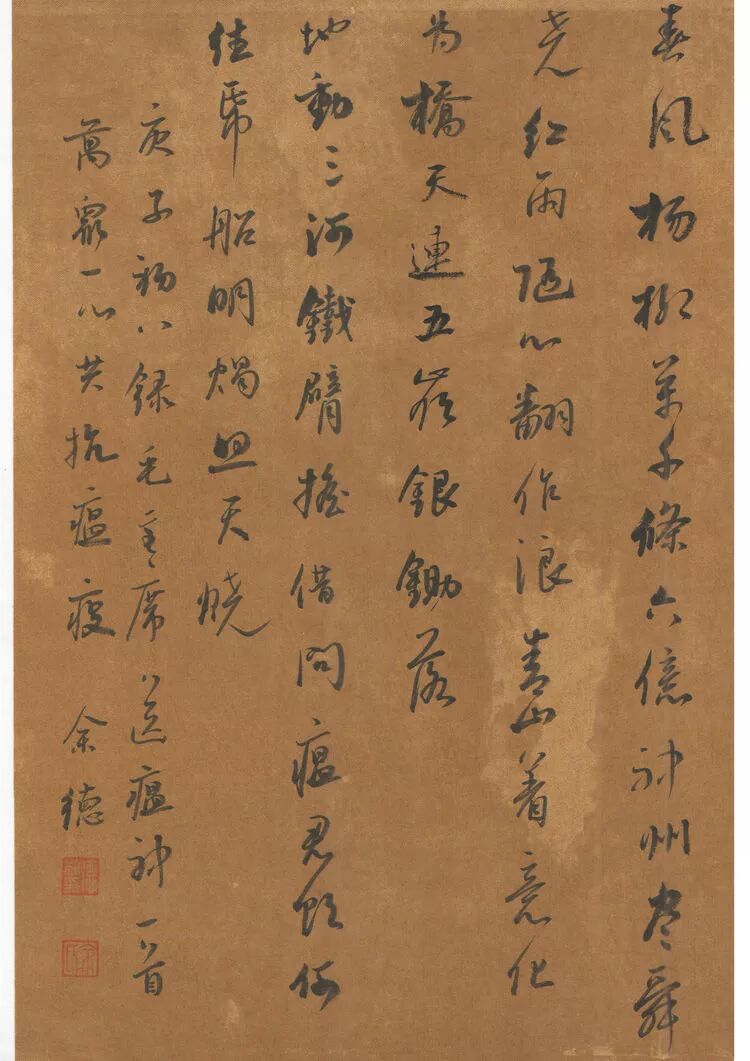 春风杨柳萬千條六億神州尽舜
尧红雨随心翻作浪青山着意化
为橋天連五岭銀鋤落
地動三河鐵臂摇借问瘟君欲何
往纸船明烛照天烧
庚子初八録毛主席送瘟神一首
萬眾一心共抗瘟疫 余德